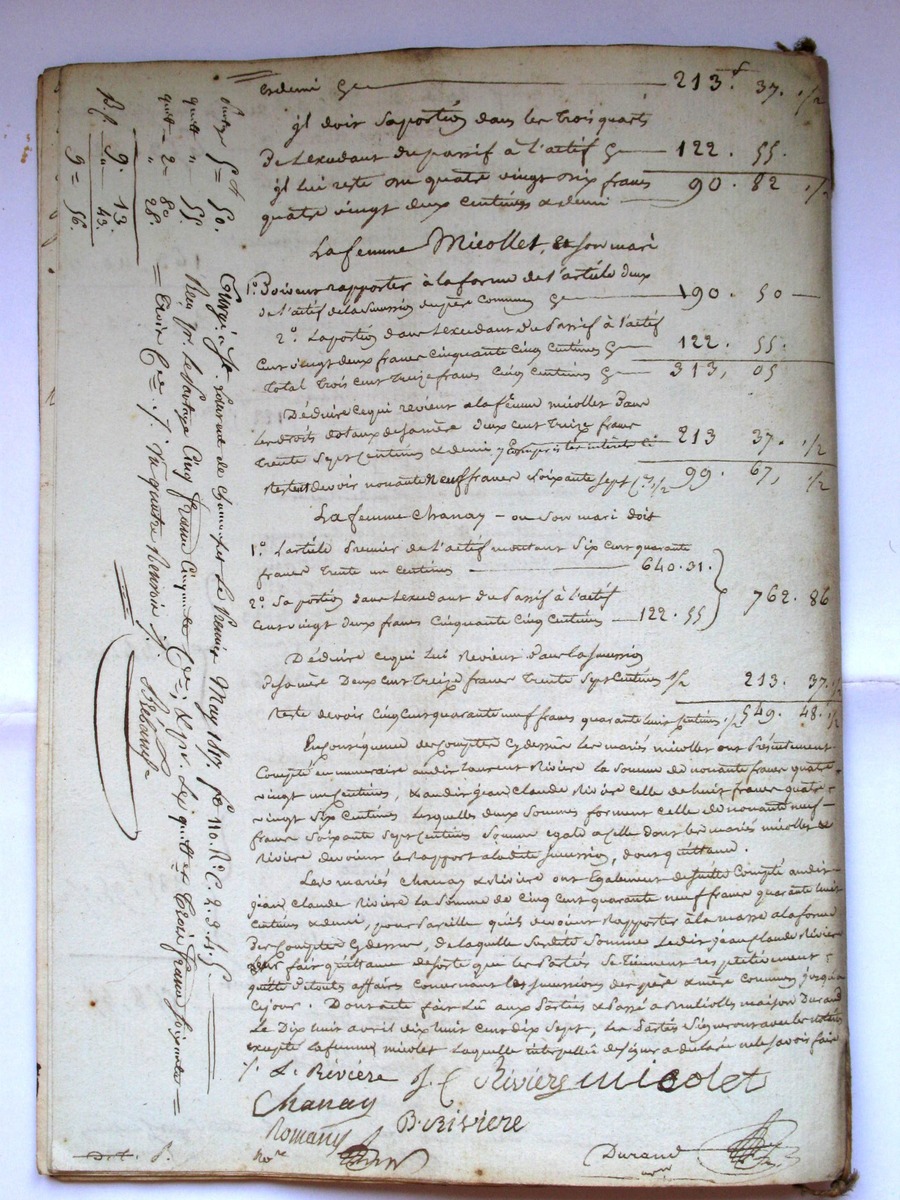 et demi Cy — 213 f 37. 1/2
il doit sa portion dans les trois quarts
de l'excedant du passif à l'actif Cy — 122. 55.
il lui reste du quatre vingt dix francs
quatre vingt deux centimes et demi — 90. 82 1/2
La femme Micollet, et son mari
1° Doivent rapporter à la forme de l'article deux
de l'actif de la succession du père commun Cy — 190. 50 —
2° La portion dans l'excedant du Passif à l'actif
Cent vingt deux francs Cinquante Cinq Centimes Cy — 122. 55.
Total trois cent treize francs Cinq Centimes Cy — 313, 05
Déduire ce qui revient a la femme micollet dans
les droits dotaux de sa mère deux cent treize francs
trente sept centimes et demi — 213 37. 1/2
Restent devoir nonante Neuf francs soixante sept C.mes 1/2 99. 67, 1/2
La femme Chanay — ou son mari doit
1° L'article Premier de l'actif montant Six cent quarante
francs trente un centimes — 640.31.
2° Sa portion dans l'excedant du Passif à l'actif
Cent vingt deux francs Cinquante Cinq Centimes — 122.55 } 762. 86
Déduire ce qui Lui Revient dans la succession
de sa mère Deux cent treize francs trente Sept Centimes 1/2 213. 37. 1/2
Reste devoir Cinq Cent quarante neuf francs quarante huit Centimes 1/2 549. 48. 1/2
En conséquence des comptes cy dessus les mariés micollet ont Présentement
Compté en numeraire audit Laurent Rivière la somme de nonante francs quatre
vingt un centimes, et audit jean claude Rivière celle de huit francs quatre
vingt Six Centimes lesquelles deux Sommes forment celle de nonante neuf
francs Soixante Sept Centimes Somme egale a celle dont les mariés micollet et
Rivière devoient le Rapport a la dite succession, dont quittance.
Les mariés Chanay et Rivière ont Egalement de suite Compté audit
jean claude Rivière la Somme de Cinq cent quarante neuf francs quarante huit
Centimes et demi, pour Pareille qu'ils devoient Rapporter à la masse a la forme
des Comptes cy dessus, de laquelle susdite somme ledit jean claude Rivière
fait quittance de sorte que les Parties Se tiennent respectivement
quitte de toutes affaires concernant les successions des père et mère communs jusqu'a
ce jour. Dont acte fait Lu aux Parties et Passé a maison Durand
Le Dix huit avril dix huit cent dix sept, les Parties Signeront avec les notaires
excepté la femme micolet laquelle interpellée de signer a declaré ne le savoir faire
L. Rivière J. C Rivière micolet
Chanay
B. Rivière
Romany
no.re
Durand
Partage 5= 50.
quitt " 55.
quitt = 2= 80
" 28.
9. 13
43.
9= 56.
Enregistré à St de chamousset Le Premier May 1817. fo. 110. R° C. 2. 3. 4. 5
Reçu pr. le Partage Cinq francs Cinquante C.mes, et pr. Les quitt.es trois francs soixante
= trois C.mes